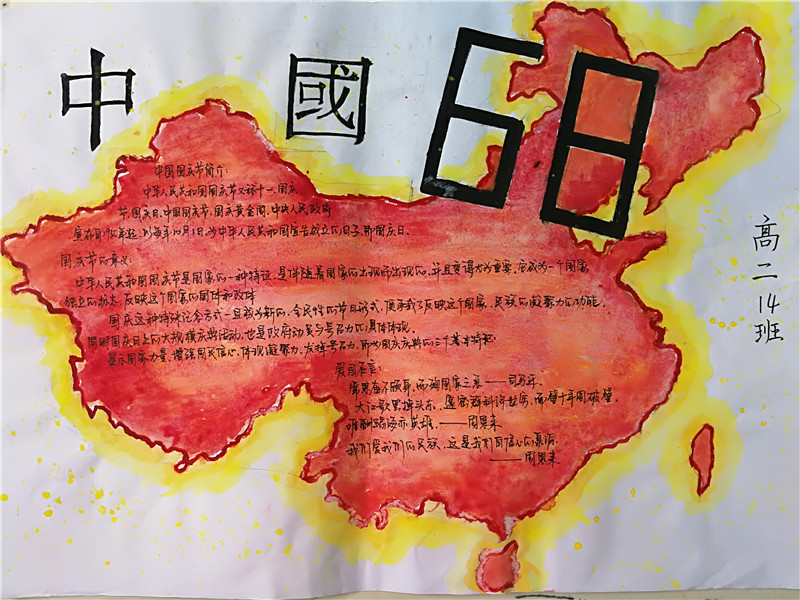 中國 68
中国国庆节简介:
中华人民共和国国庆节又称十一、国庆
节、国庆日、中国国庆节、国庆黄金周。中央人民政府
宣布自1949年起,以每年10月1日,为中华人民共和国宣告成立的日子,即国庆日。
国庆节的意义:
中华人民共和国国庆节是国家的一种特征,是伴随着国家的出现而出现的,并且变得尤为重要,它成为一个国家
独立的标志,反映这个国家的国体和政体
国庆这种特殊纪念方式一旦成为新的、全民性的节日形式,便承载了反映这个国家、民族的凝聚力的功能。
同时国庆日上的大规模庆典活动,也是政府动员与号召力的具体体现。
显示国家力量、增强国民信心,体现凝聚力,发挥号召力,即为国庆庆典的三个基本特征
爱国名言:
常思奋不顾身,而殉国家之急——司马迁。
大江歌罢掉头东,邃密群科济世穷。面壁十年图破壁,
难酬蹈海亦英雄。——周恩来
我们爱我们的民族,这是我们自信心的源泉。
——周恩来
高二14班